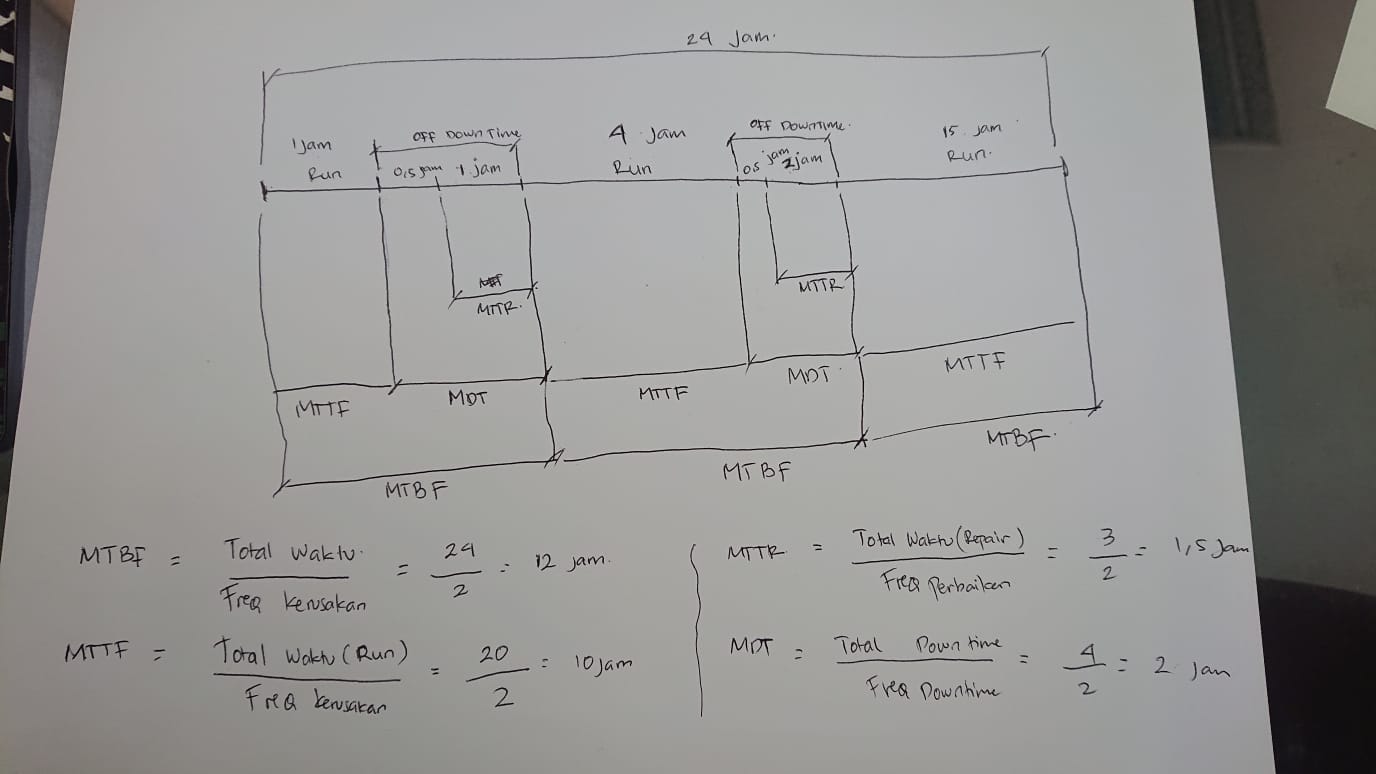 24 Jam.
1 Jam
Run
OFF DOWN TIME
0,5 jam 1 jam
4 Jam
Run
OFF DOWNTIME.
0,5 jam 2 jam
15 Jam
Run.
MTTR.
MTTR
MTTF
MDT
MTTF
MDT
MTTF
MTBF
MTBF
MTBF.
MTBF = Total Waktu. / Freq Kerusakan = 24 / 2 = 12 jam.
MTTF = Total Waktu (Run) / Freq kerusakan = 20 / 2 = 10 jam
MTTR = Total Waktu (Repair) / Freq Perbaikan = 3 / 2 = 1,5 Jam
MDT = Total Down time / Freq Downtime = 4 / 2 = 2 Jam